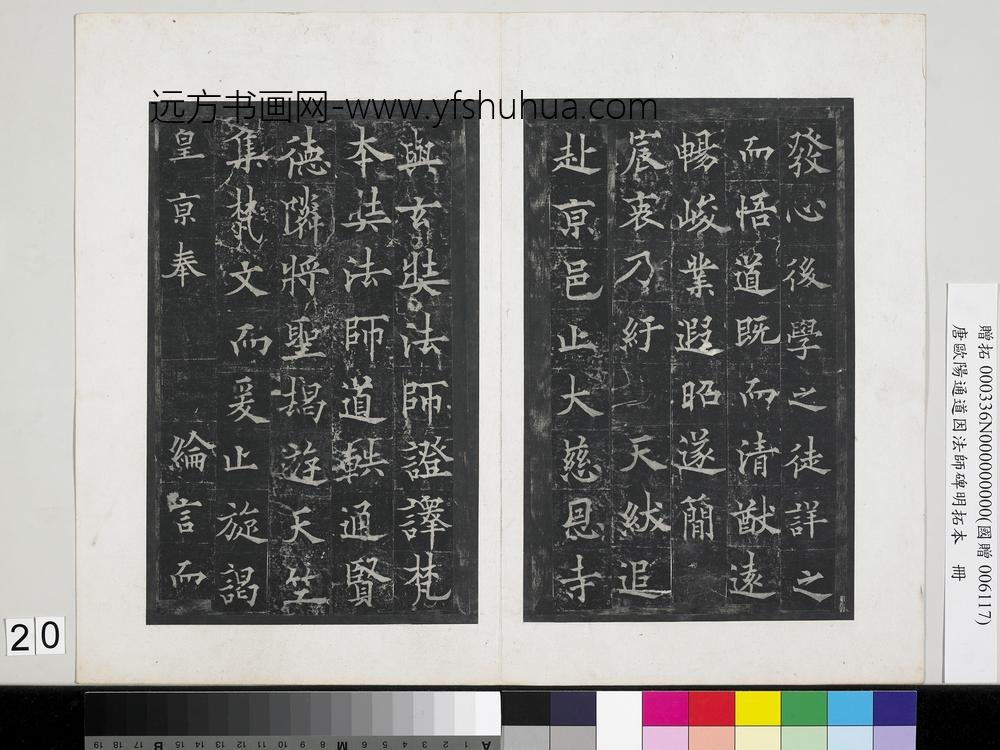 远方书画网-www.yfshuhua.com
發心後學之徒詳之
而悟道既而清猷遠
暢峻業遐昭遂簡
宸衷乃紆 天紱追
赴亰邑止大慈恩寺
與玄奘法師證譯梵
本奘法師道軼通賢
德隣將聖揭遊天竺
集梵文而爰止旋謁
皇亰奉 綸言而
贈拓 000336N000000000(國贈 006117)
唐歐陽通道因法師碑明拓本 冊
20
A 1 2 3 4 5 6 M 8 9 10 11 12 13 14 15 B 17 18 19